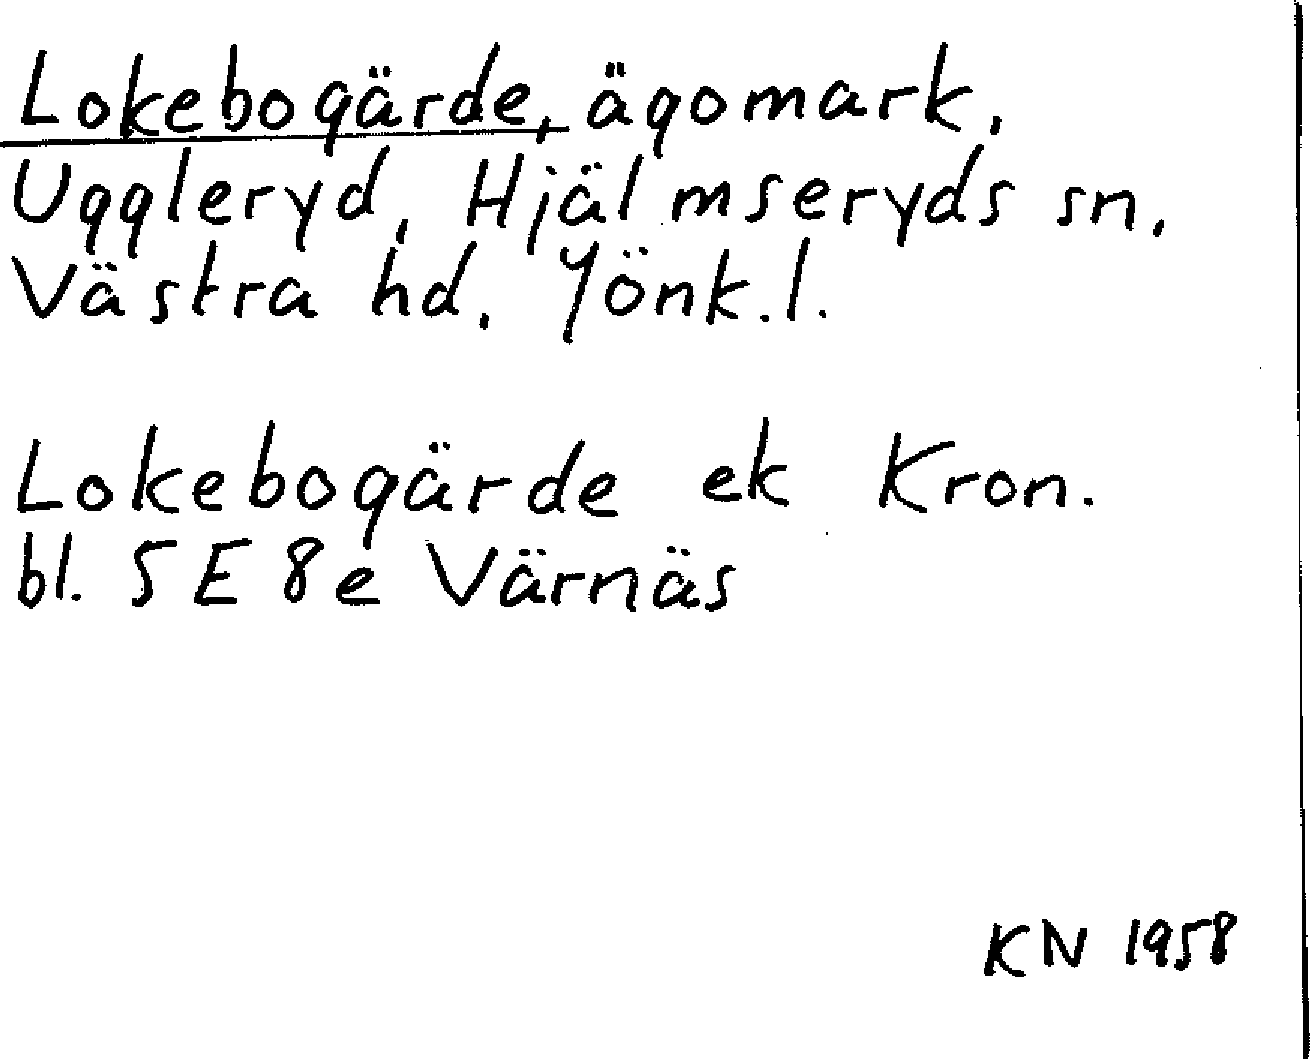 Lokebogärde, ägomark,
Uggleryd, Hjälmseryds sn.
Västra hd. Jönk.l.
Lokebogärde ek Kron.
bl. 5 E 8 e Värnäs
KN 1958